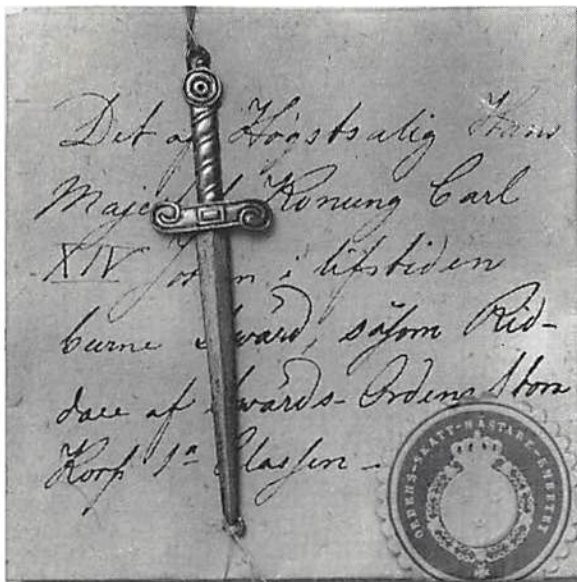 Det af Högstsalig Hans
Majestät Konung Carl
XIV Johan i lifstiden
burne Swärd, såsom Rid-
dare af Swärds-Ordens Stora
Kors 1a Classen.
ORDENS-SKATT-MÄSTARE-EMBETET